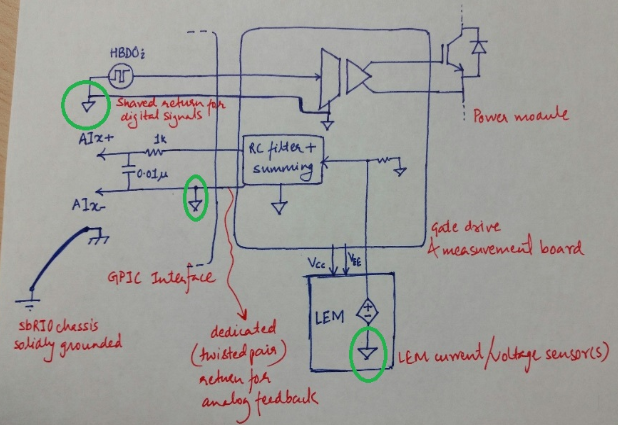 HBDOi
Shared return for
digital signals
AIx+
1k
0.01μ
AIx-
RC filter +
summing
Power module
Gate drive
& measurement board
GPIC Interface
VCC
VEE
sbRIO chassis
solidly grounded
dedicated
(twisted pair)
return for
analog feedback
LEM
+
-
LEM current/voltage sensor(s)